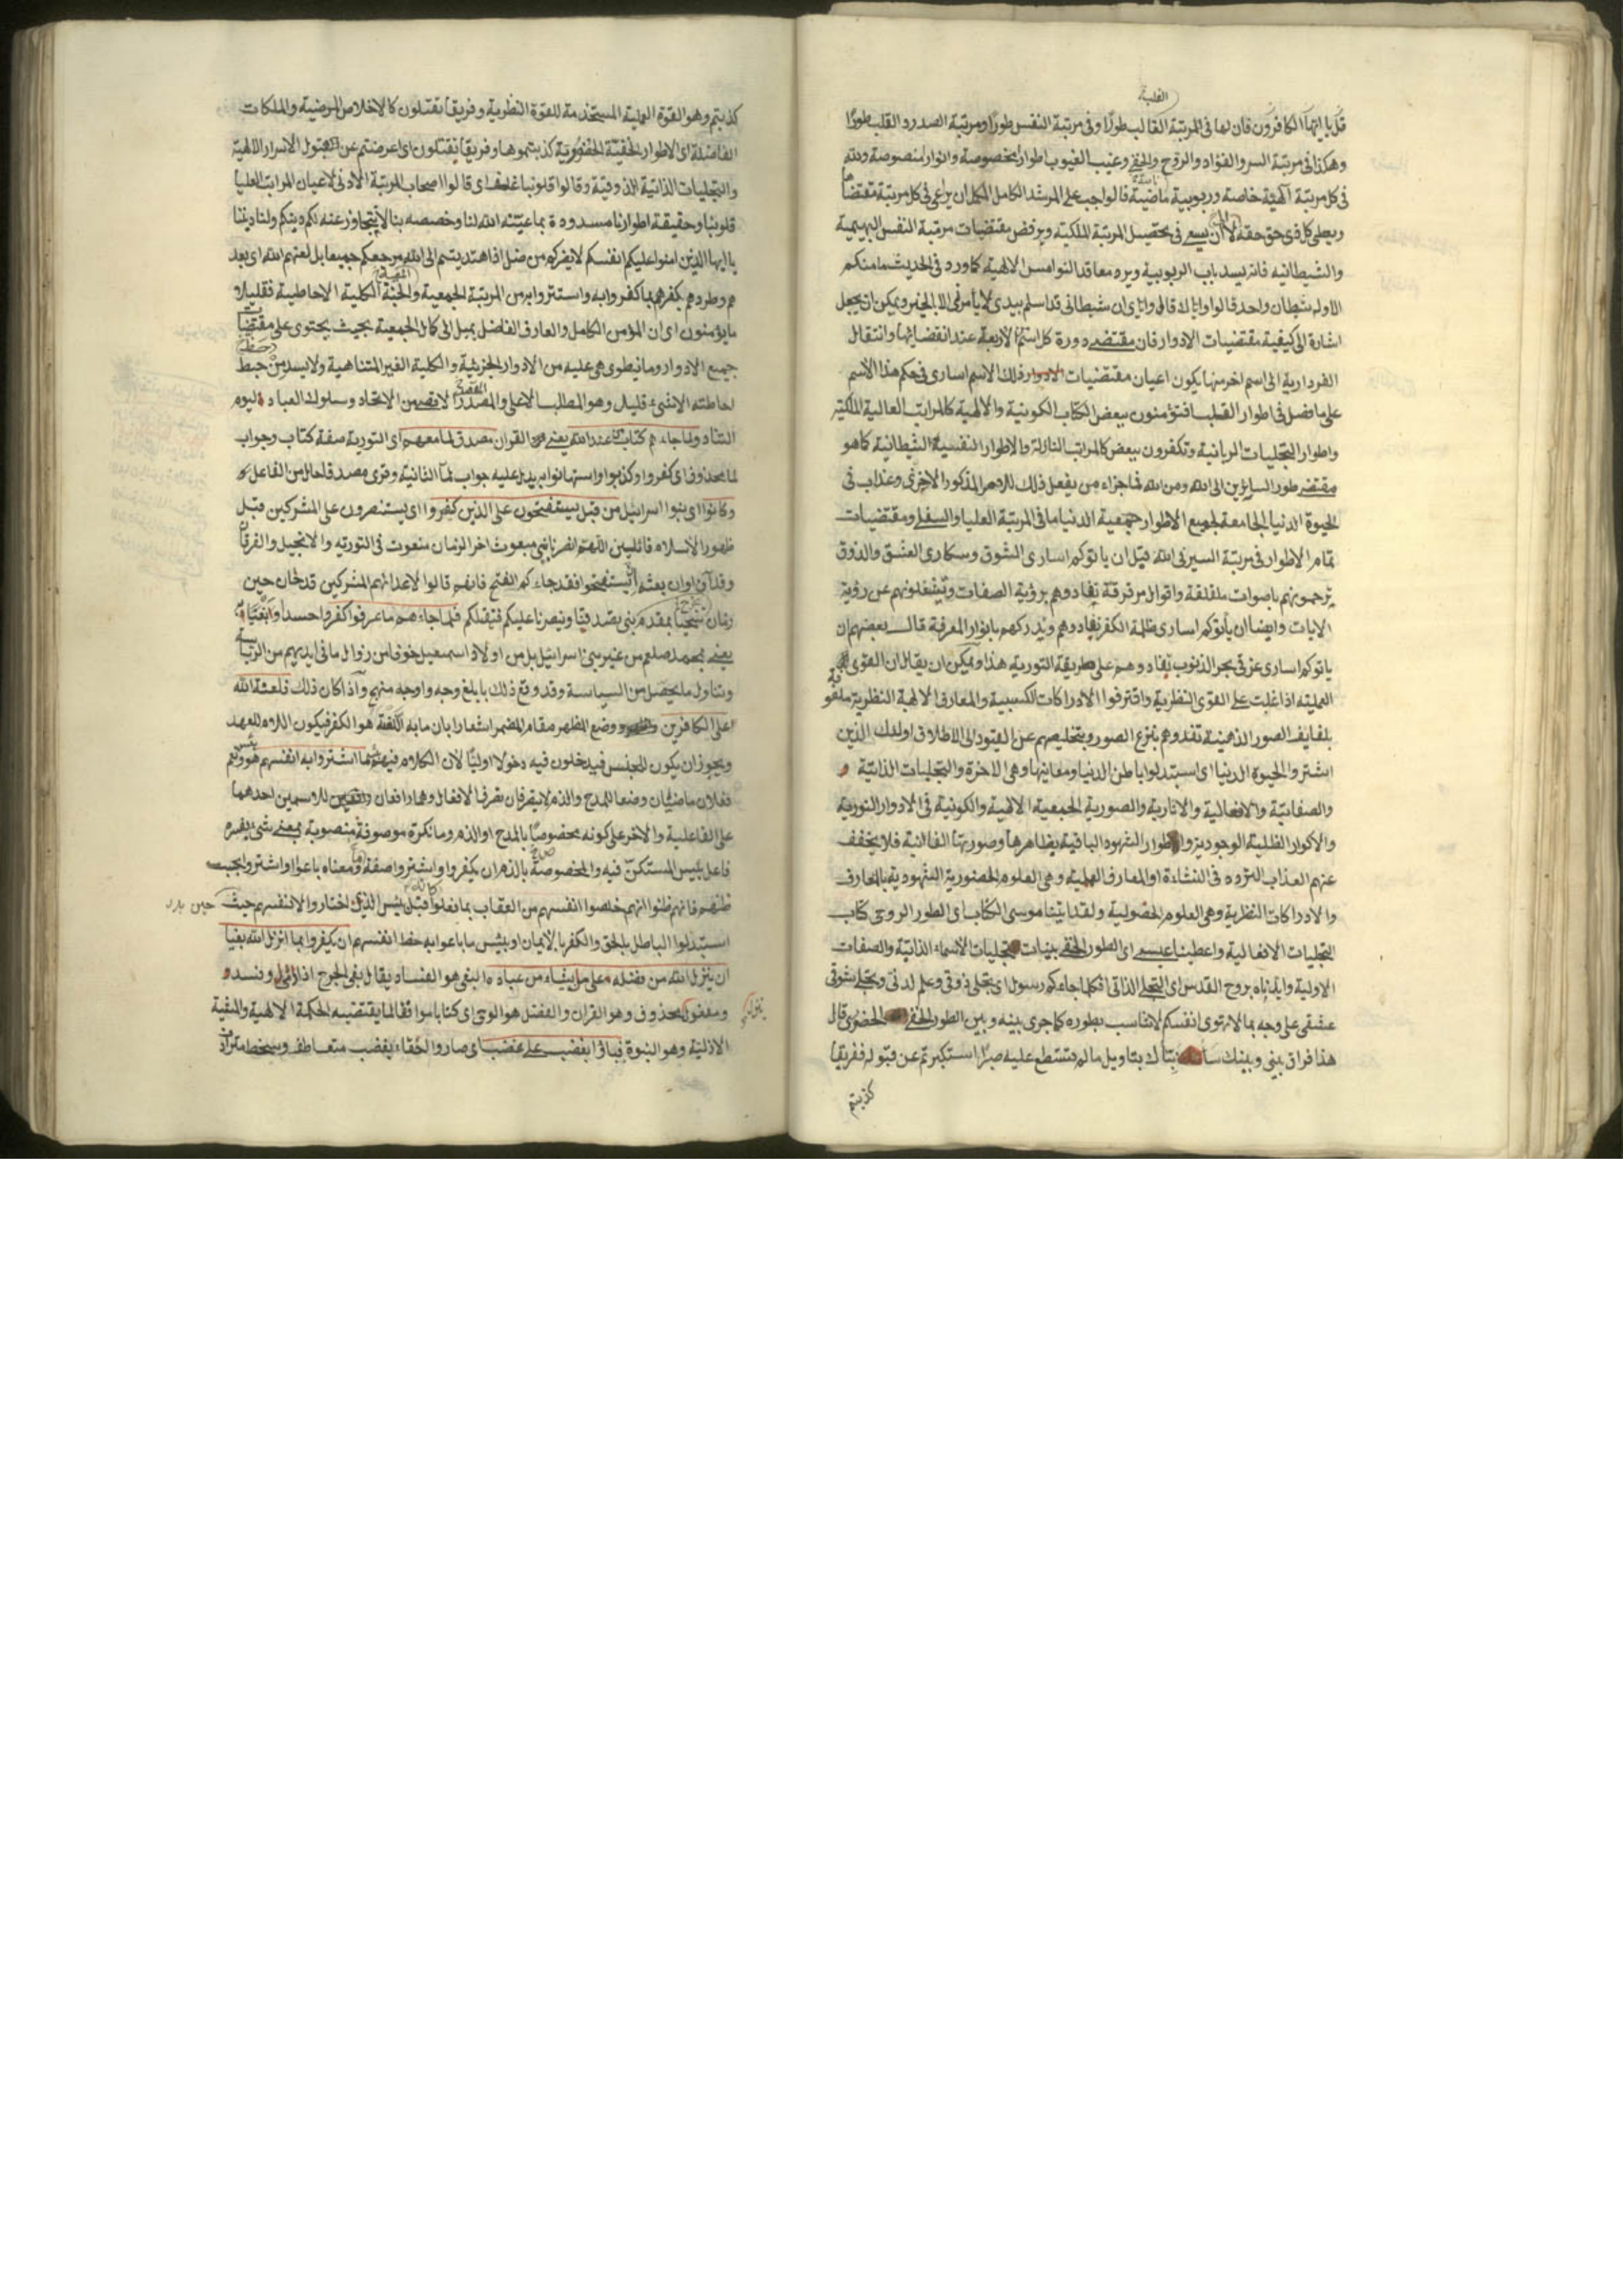 القلبية
قل يا ايها الكافرون فان لها فى المرتبة القالب طورًا وفى مرتبة النفس طورًا ومرتبة الصدر و القلب طورًا
وهكذا فى مرتبة السر والفؤاد والروح والخفى وغيب الغيوب باطوار مخصوصة وانوار منصوصة ولله
فى كل مرتبة آلهية خاصة وربوبية ماضية قالوا يجب على المرشد الكامل المكمل ان يراعى فى كل مرتبة مقتضاها
ويعطى كل ذى حق حقه لا ان يسعى فى تحصيل المرتبة الملكية ويرفض مقتضيات مرتبة النفس البهيمية
والشيطانيه فانه يسد باب الربوبية ويرد معاقد النواميس الالهية كما ورد فى الحديث ما منكم
الا وله شيطان واحد قالوا واياك قال واياى ان شيطانى قد اسلم بيدى لا يأمرنى الا بالخير ويمكن ان يجعل
اشارة الى كيفية مقتضيات الادوار فان مقتضى دورة كل اسم الاربعة عند انقضائها وانتقال
الفردارية الى اسم اخر منها يكون اعيان مقتضيات ذلك الاسم اسارى فى حكم هذا الاسم
على ما فصل فى اطوار القلب افتؤمنون ببعض الكتاب الكونية والالهية كالمراتب العالية الملكية
واطوار التجليات الربانية وتكفرون ببعض كالمراتب النازلة والاطوار النفسية الشيطانية كما هو
مقتضى طور السايرين الى الله ومن الله فما جزاء من يفعل ذلك للامر المذكور الا خزى وعذاب فى
الحيوة الدنيا الجامعة لجميع الاطوار جمعية الدنيا ما فى المرتبة العليا والسفلى ومقتضيات
تمام الاطوار فى مرتبة السير فى الله قيل ان ياتوكم اسارى الشوق وسكارى العشق والذوق
ترحمونهم باصوات ملفلقة واقوال مرقرقة تفادوهم برؤية الصفات وتشغلونهم عن رؤية
الايات وايضا ان يأتوكم اسارى ظلمة الكفر تفادوهم وتدركهم بانوار المعرفة قال بعضهم ان
ياتوكم اسارى غرقى بحر الذنوب تفادوهم على طريقة التورية هذا ويمكن ان يقال ان القوى
العملية اذا غلبت على القوى النظرية واقترفوا الادراكات الكسبية والمعارف الالهية النظرية ملفوفة
بلفايف الصور الذهنية تفدوهم بنزع الصور وبتخليصهم عن القيود الى الاطلاق اولئك الذين
اشتروا الحيوة الدنيا اى استبدلوا باطن الدنيا ومعانيها وهى الاخرة والتجليات الذاتية و
والصفاتية والافعالية والاثارية والصورية الجمعية الالهية والكونية فى الادوار النورية
والاكوار الظلية الوجودية والاطوار الشهوه الباقية بظاهرها وصورتها الفانية فلا يخفف
عنهم العذاب المتزوه فى النشاءة او المعارف العملية وهى العلوم الحضورية الشهودية بالمعارف
والادراكات النظرية وهى العلوم الحصولية ولقد اتينا موسى الكتاب اى الطور الروحى كتاب
التجليات الافعالية واعطينا عيسى اى الطور الخفى بينات تجليات الاسماء الذاتية والصفات
الاولية وايدناه بروح القدس اى التجلى الذاتى افكلما جاءكم رسول اى تجلى ذوقى وعلم لدنى وتجلى شوقى
عشقى على وجه بما لا تهوى انفسكم لا تناسب بطوره كما جرى بينه وبين الطور الخفى الخضرى قال
هذا فراق بينى وبينك سانبئك بتاويل ما لم تستطع عليه صبرًا استكبرتم عن قبوله ففريقا
كذبتم
كذبتم وهو القوة العملية المستخدمة للقوة النظرية وفريقا تقتلون كالاخلاص المرضية والملكات
الفاضلة اى الاطوار الخفية الخضورية كذبتموها وفريقا تقتلون اى اعرضتم عن قبول الاسرار اللالهية
والتجليات الذاتية الذوقية وقالوا قلوبنا غلف اى قالوا اصحاب المرتبة الادنى لاعيان المراتب العليا
قلوبنا وحقيقة اطوارنا مسدودة بما عيّنه الله لنا وخصصه بنا لا يتجاوز عنه لكم دينكم ولنا ديننا
يا ايها الذين امنوا عليكم انفسكم لا يضركم من ضل اذا اهتديتم الى الله مرجعكم جميعا بل لعنهم الله اى بعد
هم وطردهم بكفرهم بما كفروا به واستتروا به من المرتبة الجمعية والجنة الكلية الاحاطية فقليلا
ما يؤمنون اى ان المؤمن الكامل والعارف الفاضل يميل الى كمال الجمعية بحيث يحتوى على مقتضيات
جميع الادوار وما ينطوى هى عليه من الادوار الجزئية والكلية الغير المتناهية ولا يسد من حبط
احاطته الا شىء قليل وهو المطلب الاعلى والمصدر الاقصى من الاتحاد وسلوك العباد ليوم
التناد ولما جاءهم كتاب من عند الله يعنى القران مصدق لما معهم اى التورية صفة كتاب وجواب
لما محذوف اى كفروا وكذبوا واستهانوا به يدل عليه جواب لما الثانية وقرى مصدقا حال من الفاعل
وكانوا اى بنوا اسرائيل من قبل يستفتحون على الذين كفروا اى يستنصرون على المشركين قبل
ظهور الاسلام قائلين اللهم انصرنا بنبى مبعوث اخر الزمان منعوت فى التورته والانجيل والفرقان
وقد آن اوان بعثه ان تستفتحوا فقد جاءكم الفتح فانهم قالوا لاعدائهم المشركين قد حان حين
زمان بمقدم نبى يصدقنا وينصرنا عليكم فنقتلكم فلما جاءهم ما عرفوا كفروا حسدا وابتغاء
يعنى بمحمد صلعم من غير بنى اسرائيل بل من اولاد اسمعيل خوفا من زوال ما فى ايديهم من الرياسة
وتناول ما يحصل من السياسة وقد وقع ذلك بابلغ وجه واوجه منهج واذا كان ذلك فلعنة الله
على الكافرين وضع المظهر مقام المضمر اشعارا بان ما به اللعنة هو الكفر فيكون اللام للعهد
ويجوز ان يكون للجنس فيدخلون فيه دخولا اوليًا لان الكلام فيهم بئسما اشتروا به انفسهم هو ونعم
فعلان ماضيان وضعا للمدح والذم لا يتصرفان تصرف الافعال وهما رافعان للاسمين احدهما
على الفاعلية والاخر على كونه مخصوصًا بالمدح او الذم وما نكرة موصوفة منصوبة بمعنى شىء يفسره
فاعل بئيس المستكن فيه والمخصوصة بالذم ان يكفروا واشتروا صفة ما ومعناه باعوا او اشتروا بحسب
ظنهم فانهم ظنوا انهم خلصوا انفسهم من العقاب بما فعلوا قيل بئيس الذى اختاروا لانفسهم حيث
استبدلوا الباطل بالحق والكفر بالايمان او بئيس ما باعوا به حظ انفسهم ان يكفروا بما انزل الله بغيا
ان ينزل الله من فضله على من يشاء من عباده البغى هو الفساد يقال بغى الجرح اذا وفسد و
ومفعول ينزل محذوف وهو القران والفضل هو الوحى اى كتابا موافقا لما يقتضيه الحكمة الالهية والبغية
الازلية وهو النبوة فباؤا بغضب على غضب اى صاروا احقاء بغضب متعاطف وسخط مترادف